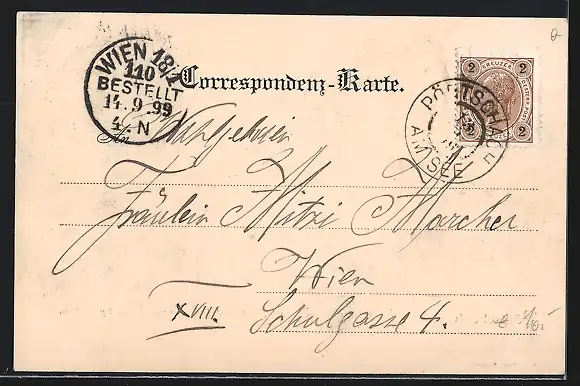 WIEN 18/1
110
BESTELLT
14.9.99
4.N
Correspondenz-Karte.
2 KREUZER 2
2 2
PÖRTSCHACH
AM SEE
An Wohlgeboren
Fräulein Mitzi Marcher
Wien
XVIII. Schulgasse 4.